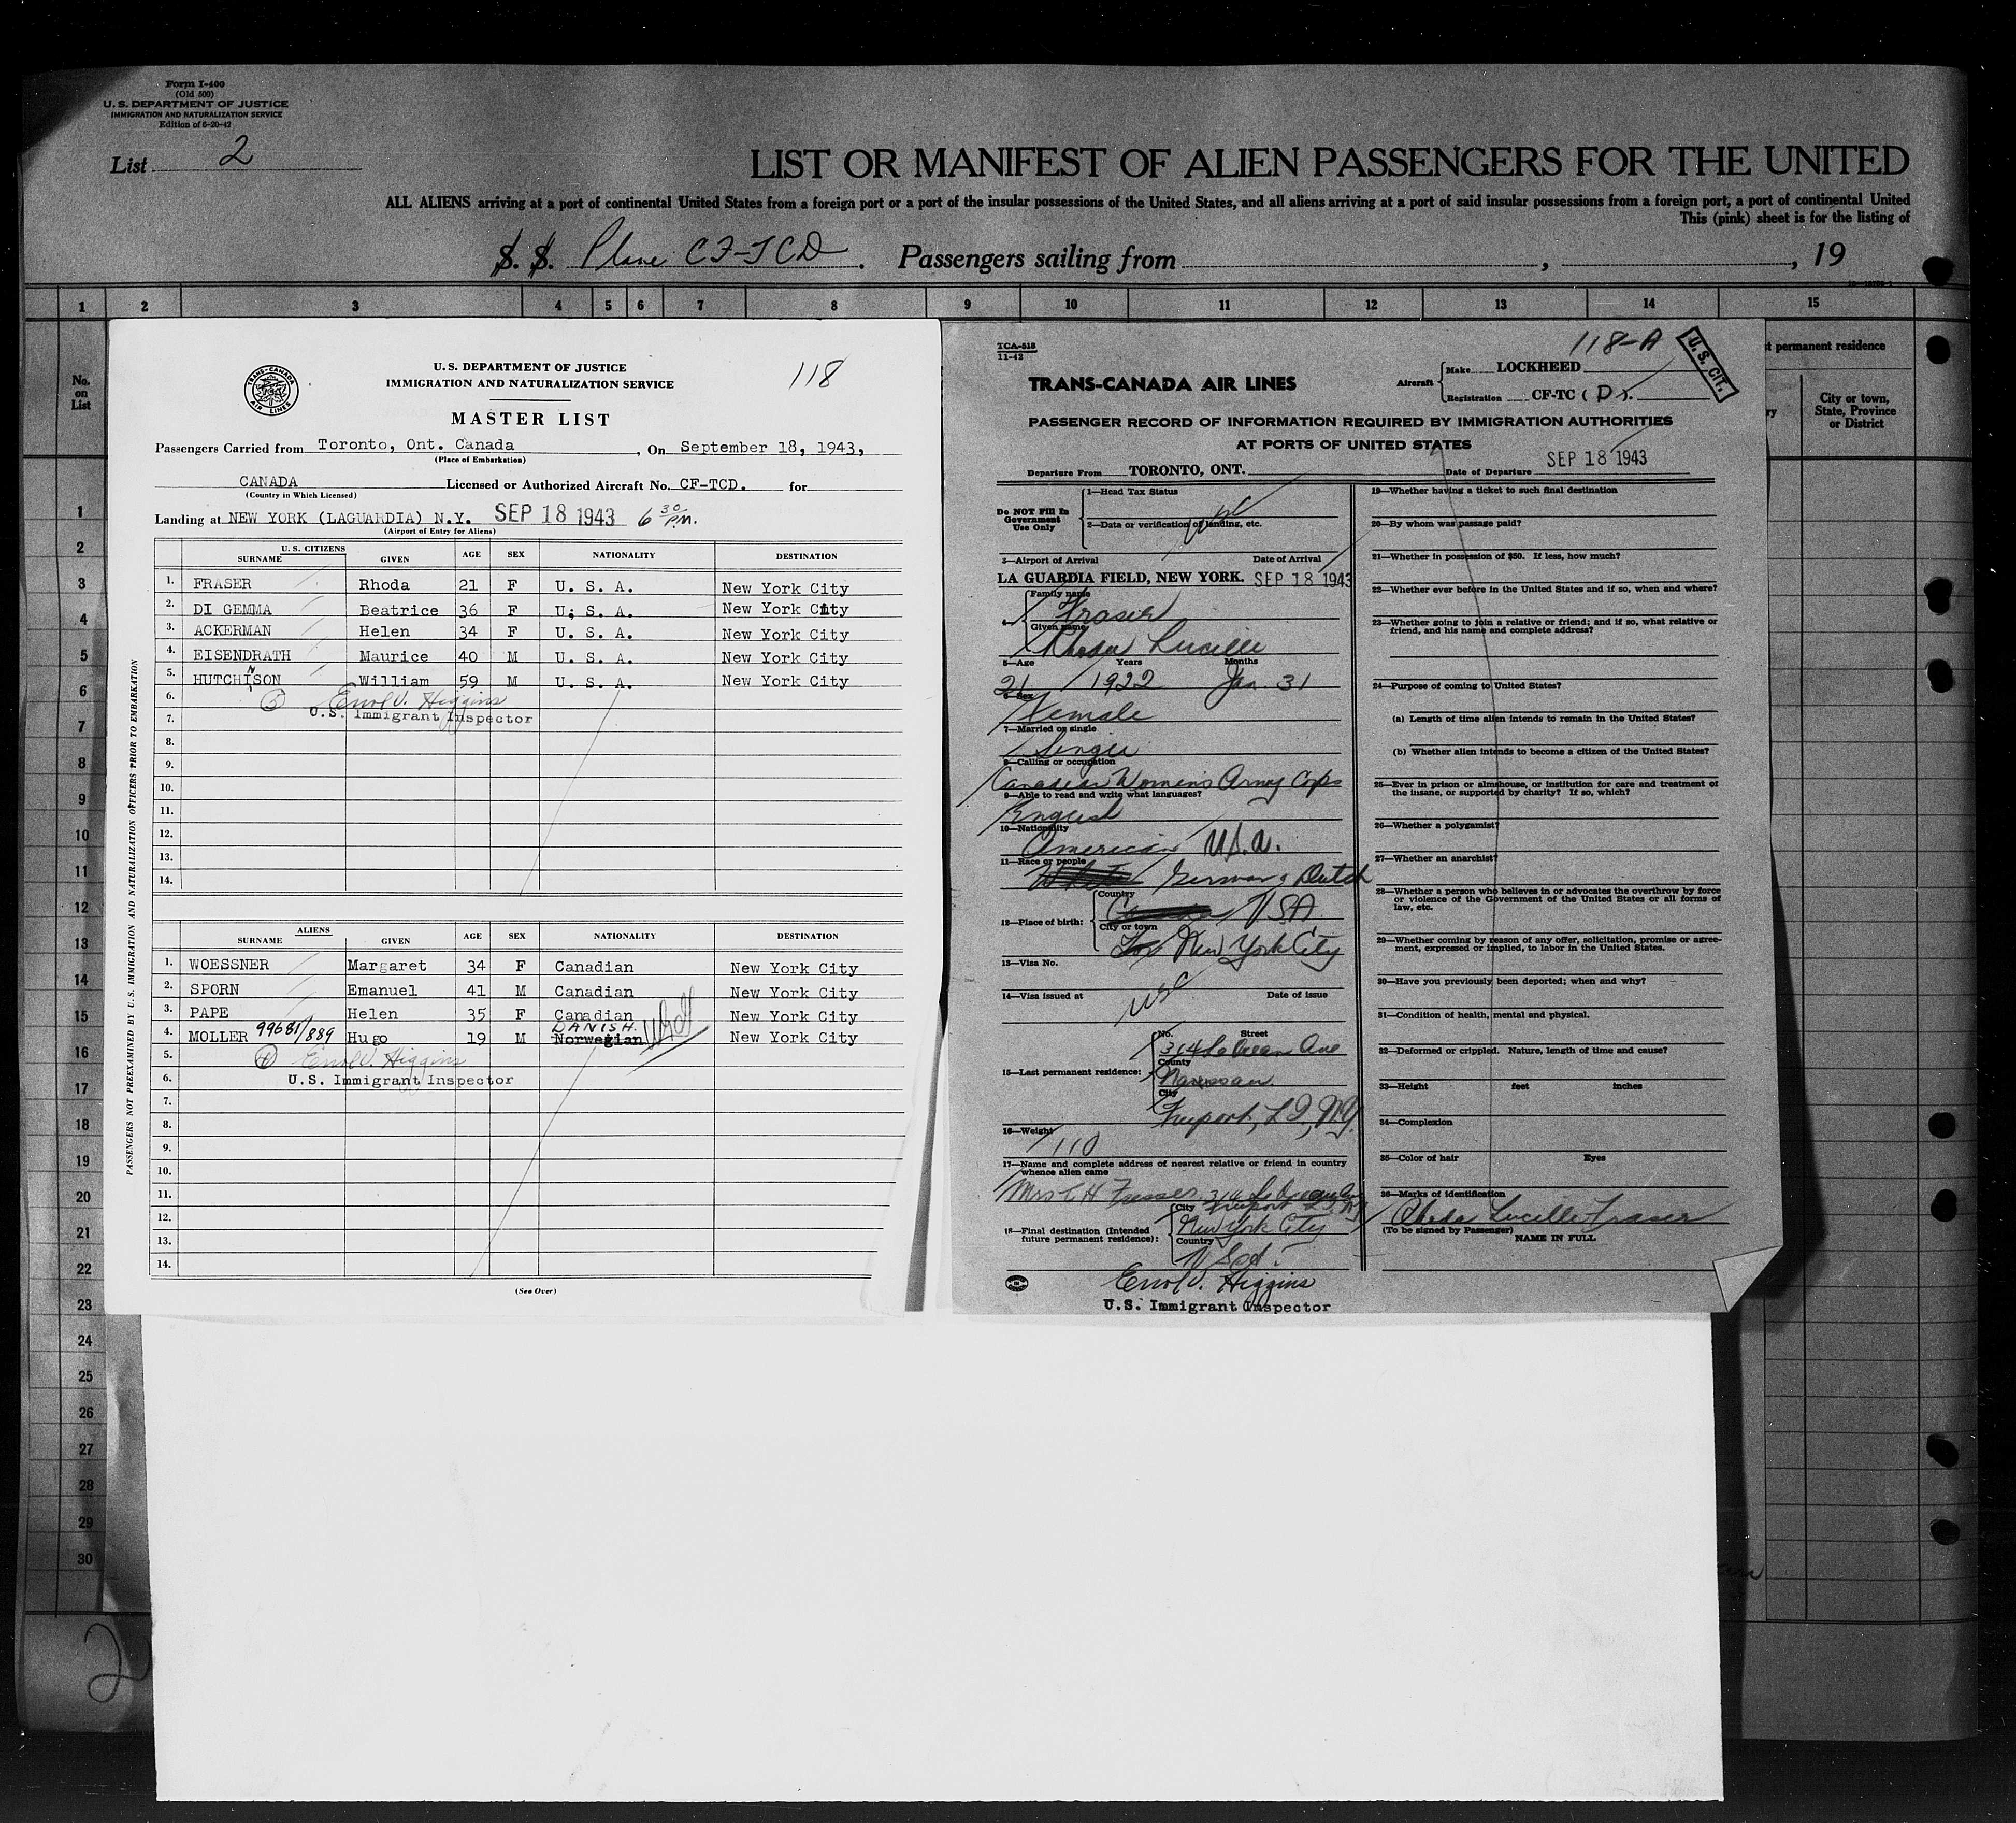 Form I-400
(Old 500)
U. S. DEPARTMENT OF JUSTICE
IMMIGRATION AND NATURALIZATION SERVICE
Edition of 6-20-42
List 2
LIST OR MANIFEST OF ALIEN PASSENGERS FOR THE UNITED
ALL ALIENS arriving at a port of continental United States from a foreign port or a port of the insular possessions of the United States, and all aliens arriving at a port of said insular possessions from a foreign port, a port of continental United
This (pink) sheet is for the listing of
S. S. Plane CF-TCD. Passengers sailing from , , 19
1 2 3 4 5 6 7 8 9 10 11 12 13 14 15
No. on List
permanent residence
City or town, State, Province or District
1
2
3
4
5
6
7
8
9
10
11
12
13
14
15
16
17
18
19
20
21
22
23
24
25
26
27
28
29
30
2
TRANS-CANADA AIR LINES
U. S. DEPARTMENT OF JUSTICE
IMMIGRATION AND NATURALIZATION SERVICE
118
MASTER LIST
Passengers Carried from Toronto, Ont. Canada, On September 18, 1943,
(Place of Embarkation)
CANADA Licensed or Authorized Aircraft No. CF-TCD. for
(Country in Which Licensed)
Landing at NEW YORK (LAGUARDIA) N.Y. SEP 18 1943 6 30 P.M.
(Airport of Entry for Aliens)
U. S. CITIZENS
SURNAME GIVEN AGE SEX NATIONALITY DESTINATION
1. FRASER Rhoda 21 F U. S. A. New York City
2. DI GEMMA Beatrice 36 F U. S. A. New York City
3. ACKERMAN Helen 34 F U. S. A. New York City
4. EISENDRATH Maurice 40 M U. S. A. New York City
5. HUTCHINSON William 59 M U. S. A. New York City
6. (5) Errol V. Higgins
7. U.S. Immigrant Inspector
8.
9.
10.
11.
12.
13.
14.
ALIENS
SURNAME GIVEN AGE SEX NATIONALITY DESTINATION
1. WOESSNER Margaret 34 F Canadian New York City
2. SPORN Emanuel 41 M Canadian New York City
3. PAPE Helen 35 F Canadian New York City
DANISH
4. MOLLER 99681/889 Hugo 19 M Norwegian New York City
5. (4) Errol V. Higgins
6. U.S. Immigrant Inspector
7.
8.
9.
10.
11.
12.
13.
14.
(See Over)
PASSENGERS NOT PREEXAMINED BY U.S. IMMIGRATION AND NATURALIZATION OFFICERS PRIOR TO EMBARKATION
TCA-518
11-42
118-A
U.S. CIT.
TRANS-CANADA AIR LINES
Aircraft Make LOCKHEED
Registration CF-TC ( D ).
PASSENGER RECORD OF INFORMATION REQUIRED BY IMMIGRATION AUTHORITIES
AT PORTS OF UNITED STATES
Departure From TORONTO, ONT. Date of Departure SEP 18 1943
Do NOT Fill In Government Use Only
1—Head Tax Status
USC
2—Data or verification of landing, etc.
3—Airport of Arrival Date of Arrival
LA GUARDIA FIELD, NEW YORK. SEP 18 1943
4— Family name
Fraser
Given name
Rhoda Lucille
5—Age Years Months
21 1922 Jan. 31
6—Sex
Female
7—Married or single
Single
8—Calling or occupation
Canadian Women's Army Corps
9—Able to read and write what languages?
English
10—Nationality
American U.S.A.
11—Race or people
White German & Dutch
12—Place of birth: Country
Canada USA
City or town
New York City
13—Visa No.
USC
14—Visa issued at Date of issue
15—Last permanent residence: No. Street
314 So Ocean Ave
County
Nassau
City
Freeport, L.I., N.Y.
16—Weight
110
17—Name and complete address of nearest relative or friend in country whence alien came
Mrs C H Fraser 314 So Ocean Ave
Freeport L.I. N.Y.
18—Final destination (Intended future permanent residence): City
New York City
Country
USA
Errol V. Higgins
U.S. Immigrant Inspector
19—Whether having a ticket to such final destination
20—By whom was passage paid?
21—Whether in possession of $50. If less, how much?
22—Whether ever before in the United States and if so, when and where?
23—Whether going to join a relative or friend; and if so, what relative or friend, and his name and complete address?
24—Purpose of coming to United States?
(a) Length of time alien intends to remain in the United States?
(b) Whether alien intends to become a citizen of the United States?
25—Ever in prison or almshouse, or institution for care and treatment of the insane, or supported by charity? If so, which?
26—Whether a polygamist?
27—Whether an anarchist?
28—Whether a person who believes in or advocates the overthrow by force or violence of the Government of the United States or all forms of law, etc.
29—Whether coming by reason of any offer, solicitation, promise or agreement, expressed or implied, to labor in the United States.
30—Have you previously been deported; when and why?
31—Condition of health, mental and physical.
32—Deformed or crippled. Nature, length of time and cause?
33—Height feet inches
34—Complexion
35—Color of hair Eyes
36—Marks of identification
Rhoda Lucille Fraser
(To be signed by Passenger) NAME IN FULL